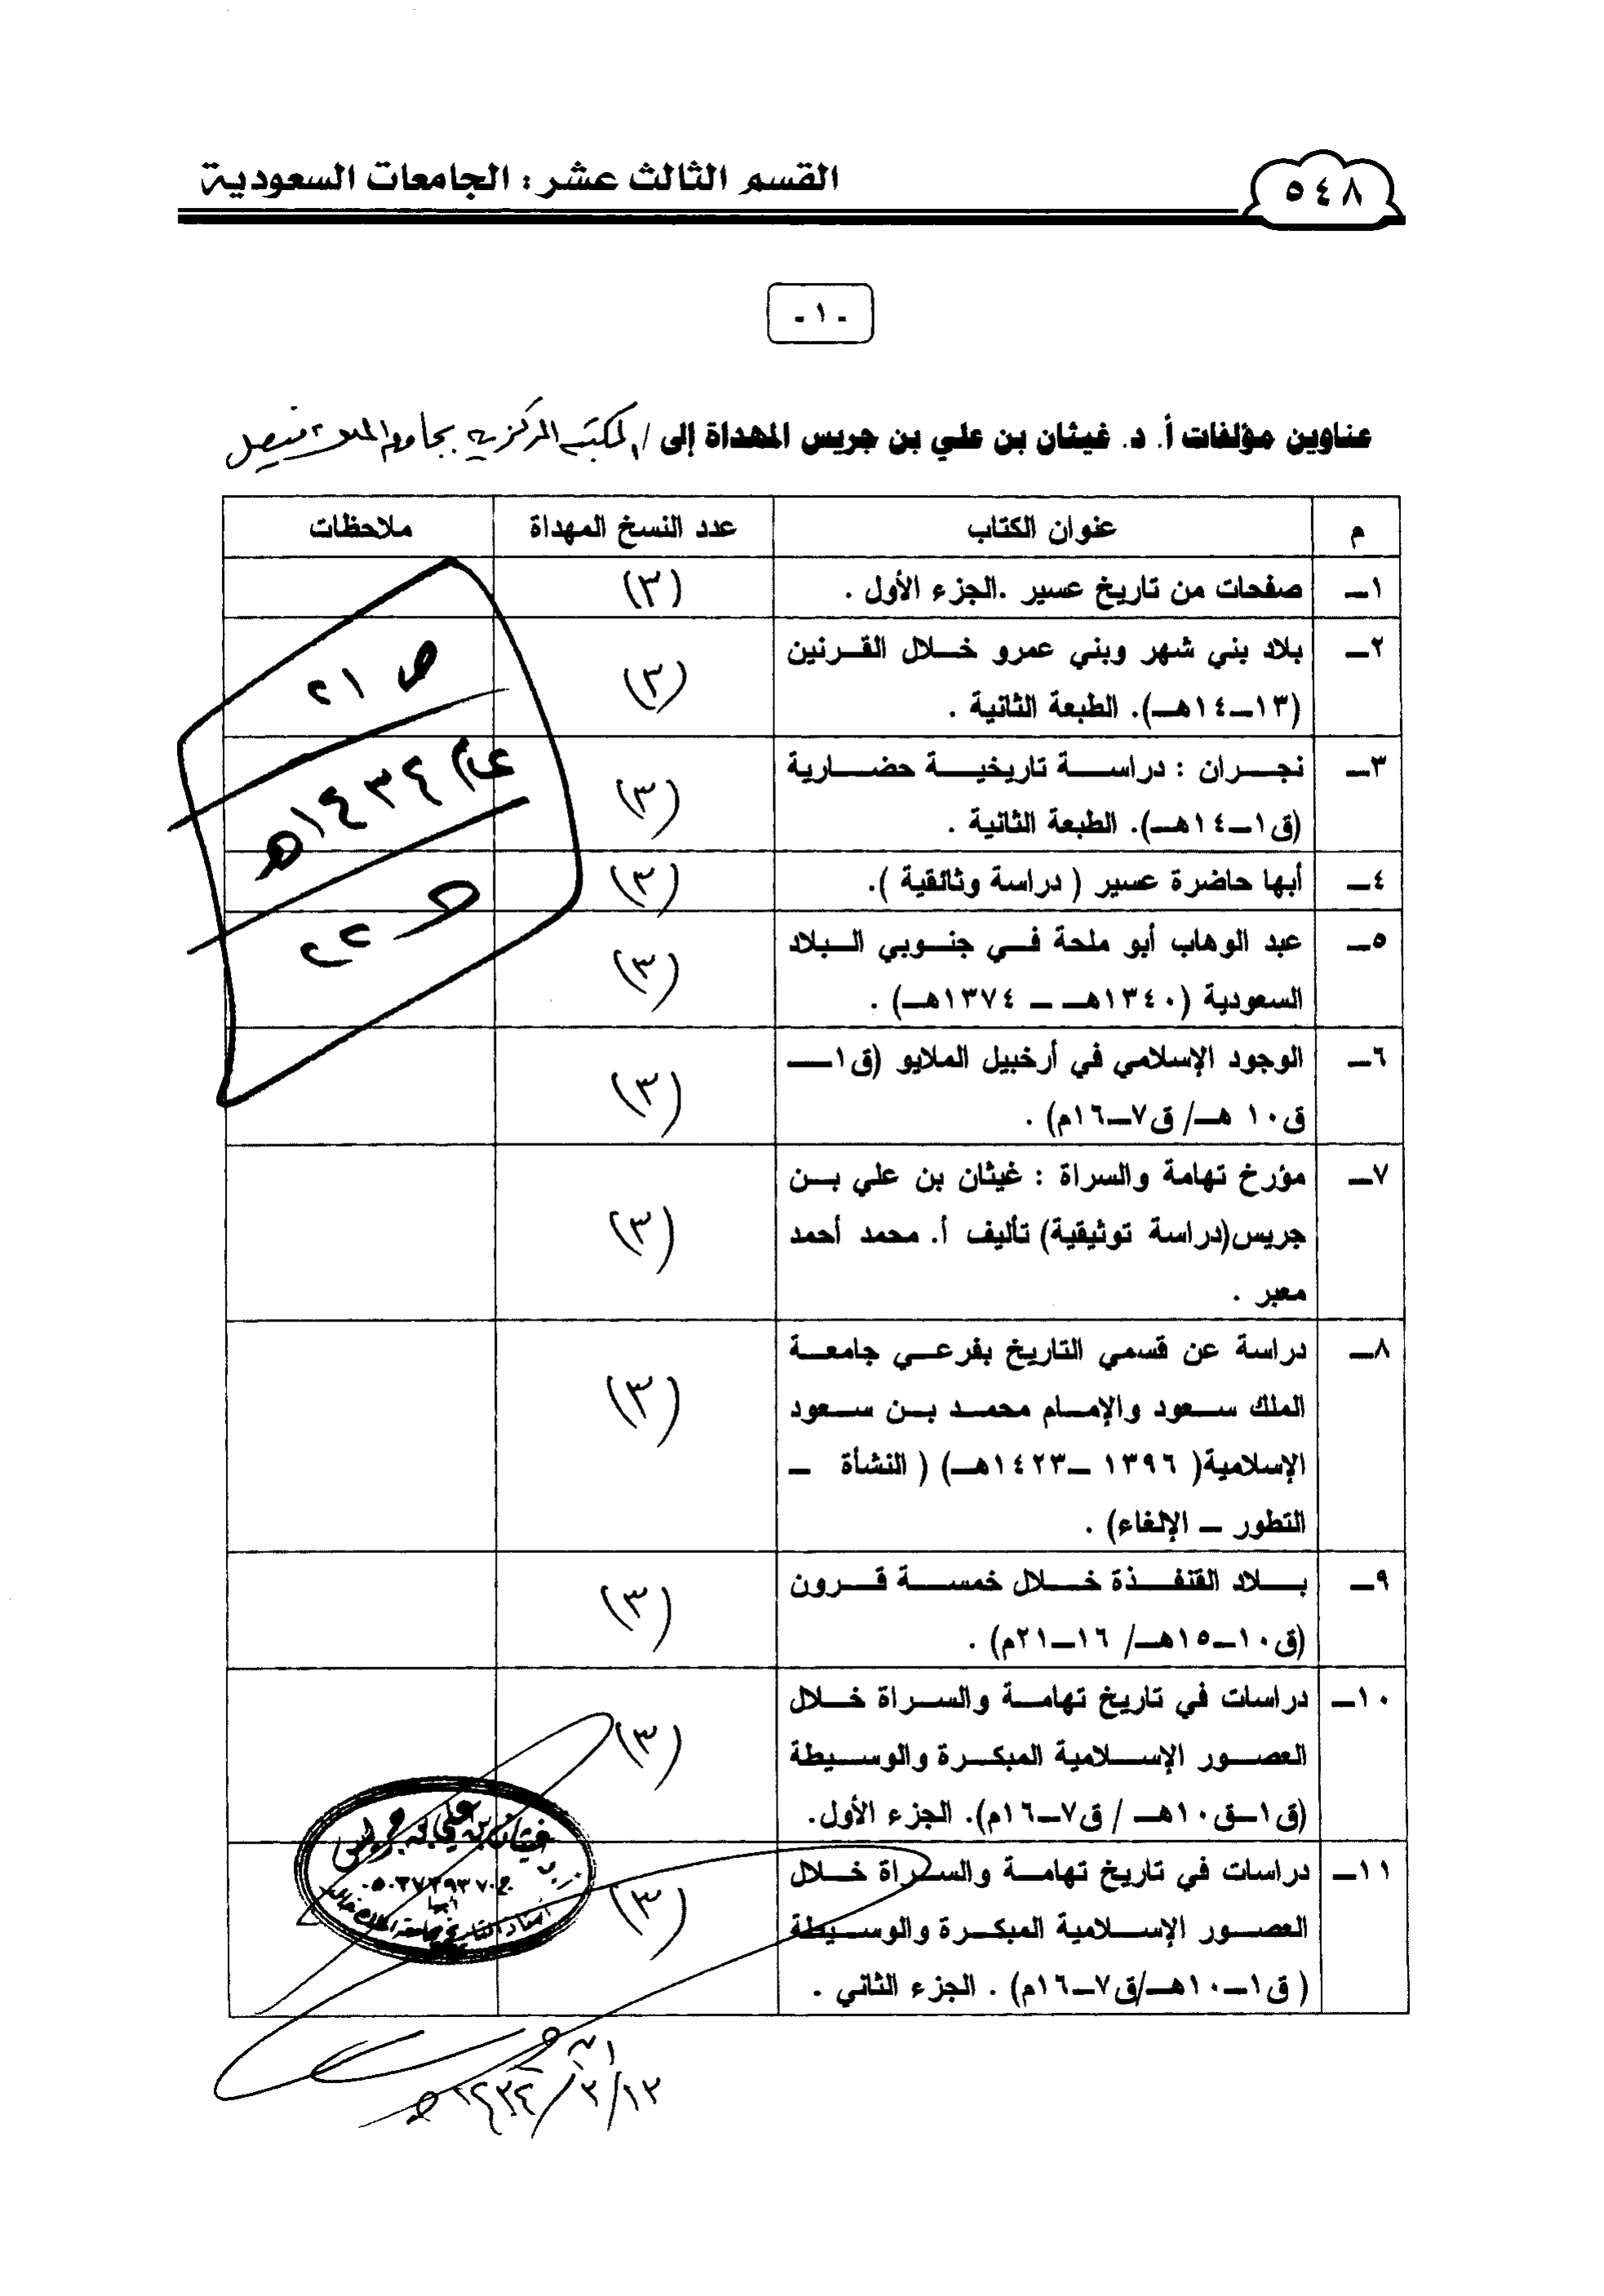 ٥٤٨
القسم الثالث عشر : الجامعات السعودية
- ١ -
عناوين مؤلفات أ. د. غيثان بن علي بن جريس المهداة إلى / المكتبة المركزية بجامعة الملك فيصل
م عنوان الكتاب عدد النسخ المهداة ملاحظات
١ـ صفحات من تاريخ عسير .الجزء الأول . (٣)
٢ـ بلاد بني شهر وبني عمرو خلال القرنين
(١٣ـ١٤هـ). الطبعة الثانية . (٣)
٣ـ نجران : دراسة تاريخية حضارية
(ق١ـ١٤هـ). الطبعة الثانية . (٣)
٤ـ أبها حاضرة عسير ( دراسة وثائقية ). (٣)
٥ـ عبد الوهاب أبو ملحة في جنوبي البلاد
السعودية (١٣٤٠هـ ـ ١٣٧٤هـ) . (٣)
٦ـ الوجود الإسلامي في أرخبيل الملايو (ق١ـ
ق١٠ هـ/ ق٧ـ١٦م) . (٣)
٧ـ مؤرخ تهامة والسراة : غيثان بن علي بن
جريس(دراسة توثيقية) تأليف أ. محمد أحمد
معبر . (٣)
٨ـ دراسة عن قسمي التاريخ بفرعي جامعة
الملك سعود والإمام محمد بن سعود
الإسلامية( ١٣٩٦ ـ١٤٢٣هـ) ( النشأة ـ
التطور ـ الإلغاء) . (٣)
٩ـ بلاد القنفذة خلال خمسة قرون
(ق١٠ـ١٥هـ/ ١٦ـ٢١م) . (٣)
١٠ـ دراسات في تاريخ تهامة والسراة خلال
العصور الإسلامية المبكرة والوسيطة
(ق١ـق١٠هـ / ق٧ـ١٦م). الجزء الأول. (٣)
١١ـ دراسات في تاريخ تهامة والسراة خلال
العصور الإسلامية المبكرة والوسيطة
( ق١ـ١٠هـ/ق٧ـ١٦م) . الجزء الثاني . (٣)
ص ٢١
عام ١٤٣٤هـ
٢٢
غيثان بن علي بن جريس
أبها
أستاذ التاريخ جامعة الملك خالد